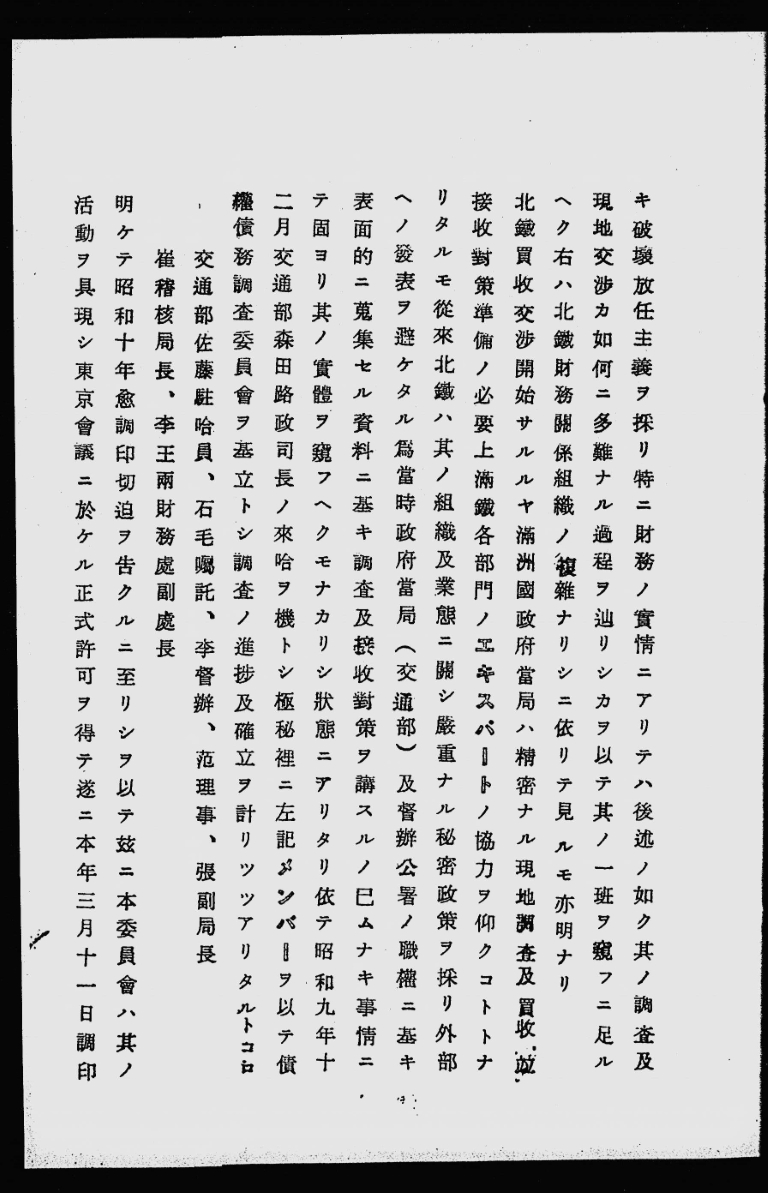 キ破壞放任主義ヲ採リ特ニ財務ノ實情ニアリテハ後述ノ如ク其ノ調査及
現地交渉カ如何ニ多難ナル過程ヲ辿リシカヲ以テ其ノ一班ヲ窺フニ足ル
ヘク右ハ北鐵財務關係組織ノ複雜ナリシニ依リテ見ルモ亦明ナリ
北鐵買收交渉開始サルルヤ滿洲國政府當局ハ精密ナル現地調査及買收並
接收對策準備ノ必要上滿鐵各部門ノエキスパートノ協力ヲ仰クコトトナ
リタルモ從來北鐵ハ其ノ組織及業態ニ關シ嚴重ナル秘密政策ヲ採リ外部
ヘノ發表ヲ避ケタル爲當時政府當局(交通部)及督辦公署ノ職權ニ基キ
表面的ニ蒐集セル資料ニ基キ調査及接收對策ヲ講スルノ巳ムナキ事情ニ
テ固ヨリ其ノ實體ヲ窺フヘクモナカリシ狀態ニアリタリ依テ昭和九年十
二月交通部森田路政司長ノ來哈ヲ機トシ極秘裡ニ左記メンバーヲ以テ債
權債務調査委員會ヲ基立トシ調査ノ進捗及確立ヲ計リツツアリタルトコロ
交通部佐藤駐哈員、石毛囑託、李督辦、范理事、張副局長
崔稽核局長、李王兩財務處副處長
明ケテ昭和十年愈調印切迫ヲ告クルニ至リシヲ以テ玆ニ本委員會ハ其ノ
活動ヲ具現シ東京會議ニ於ケル正式許可ヲ得テ遂ニ本年三月十一日調印